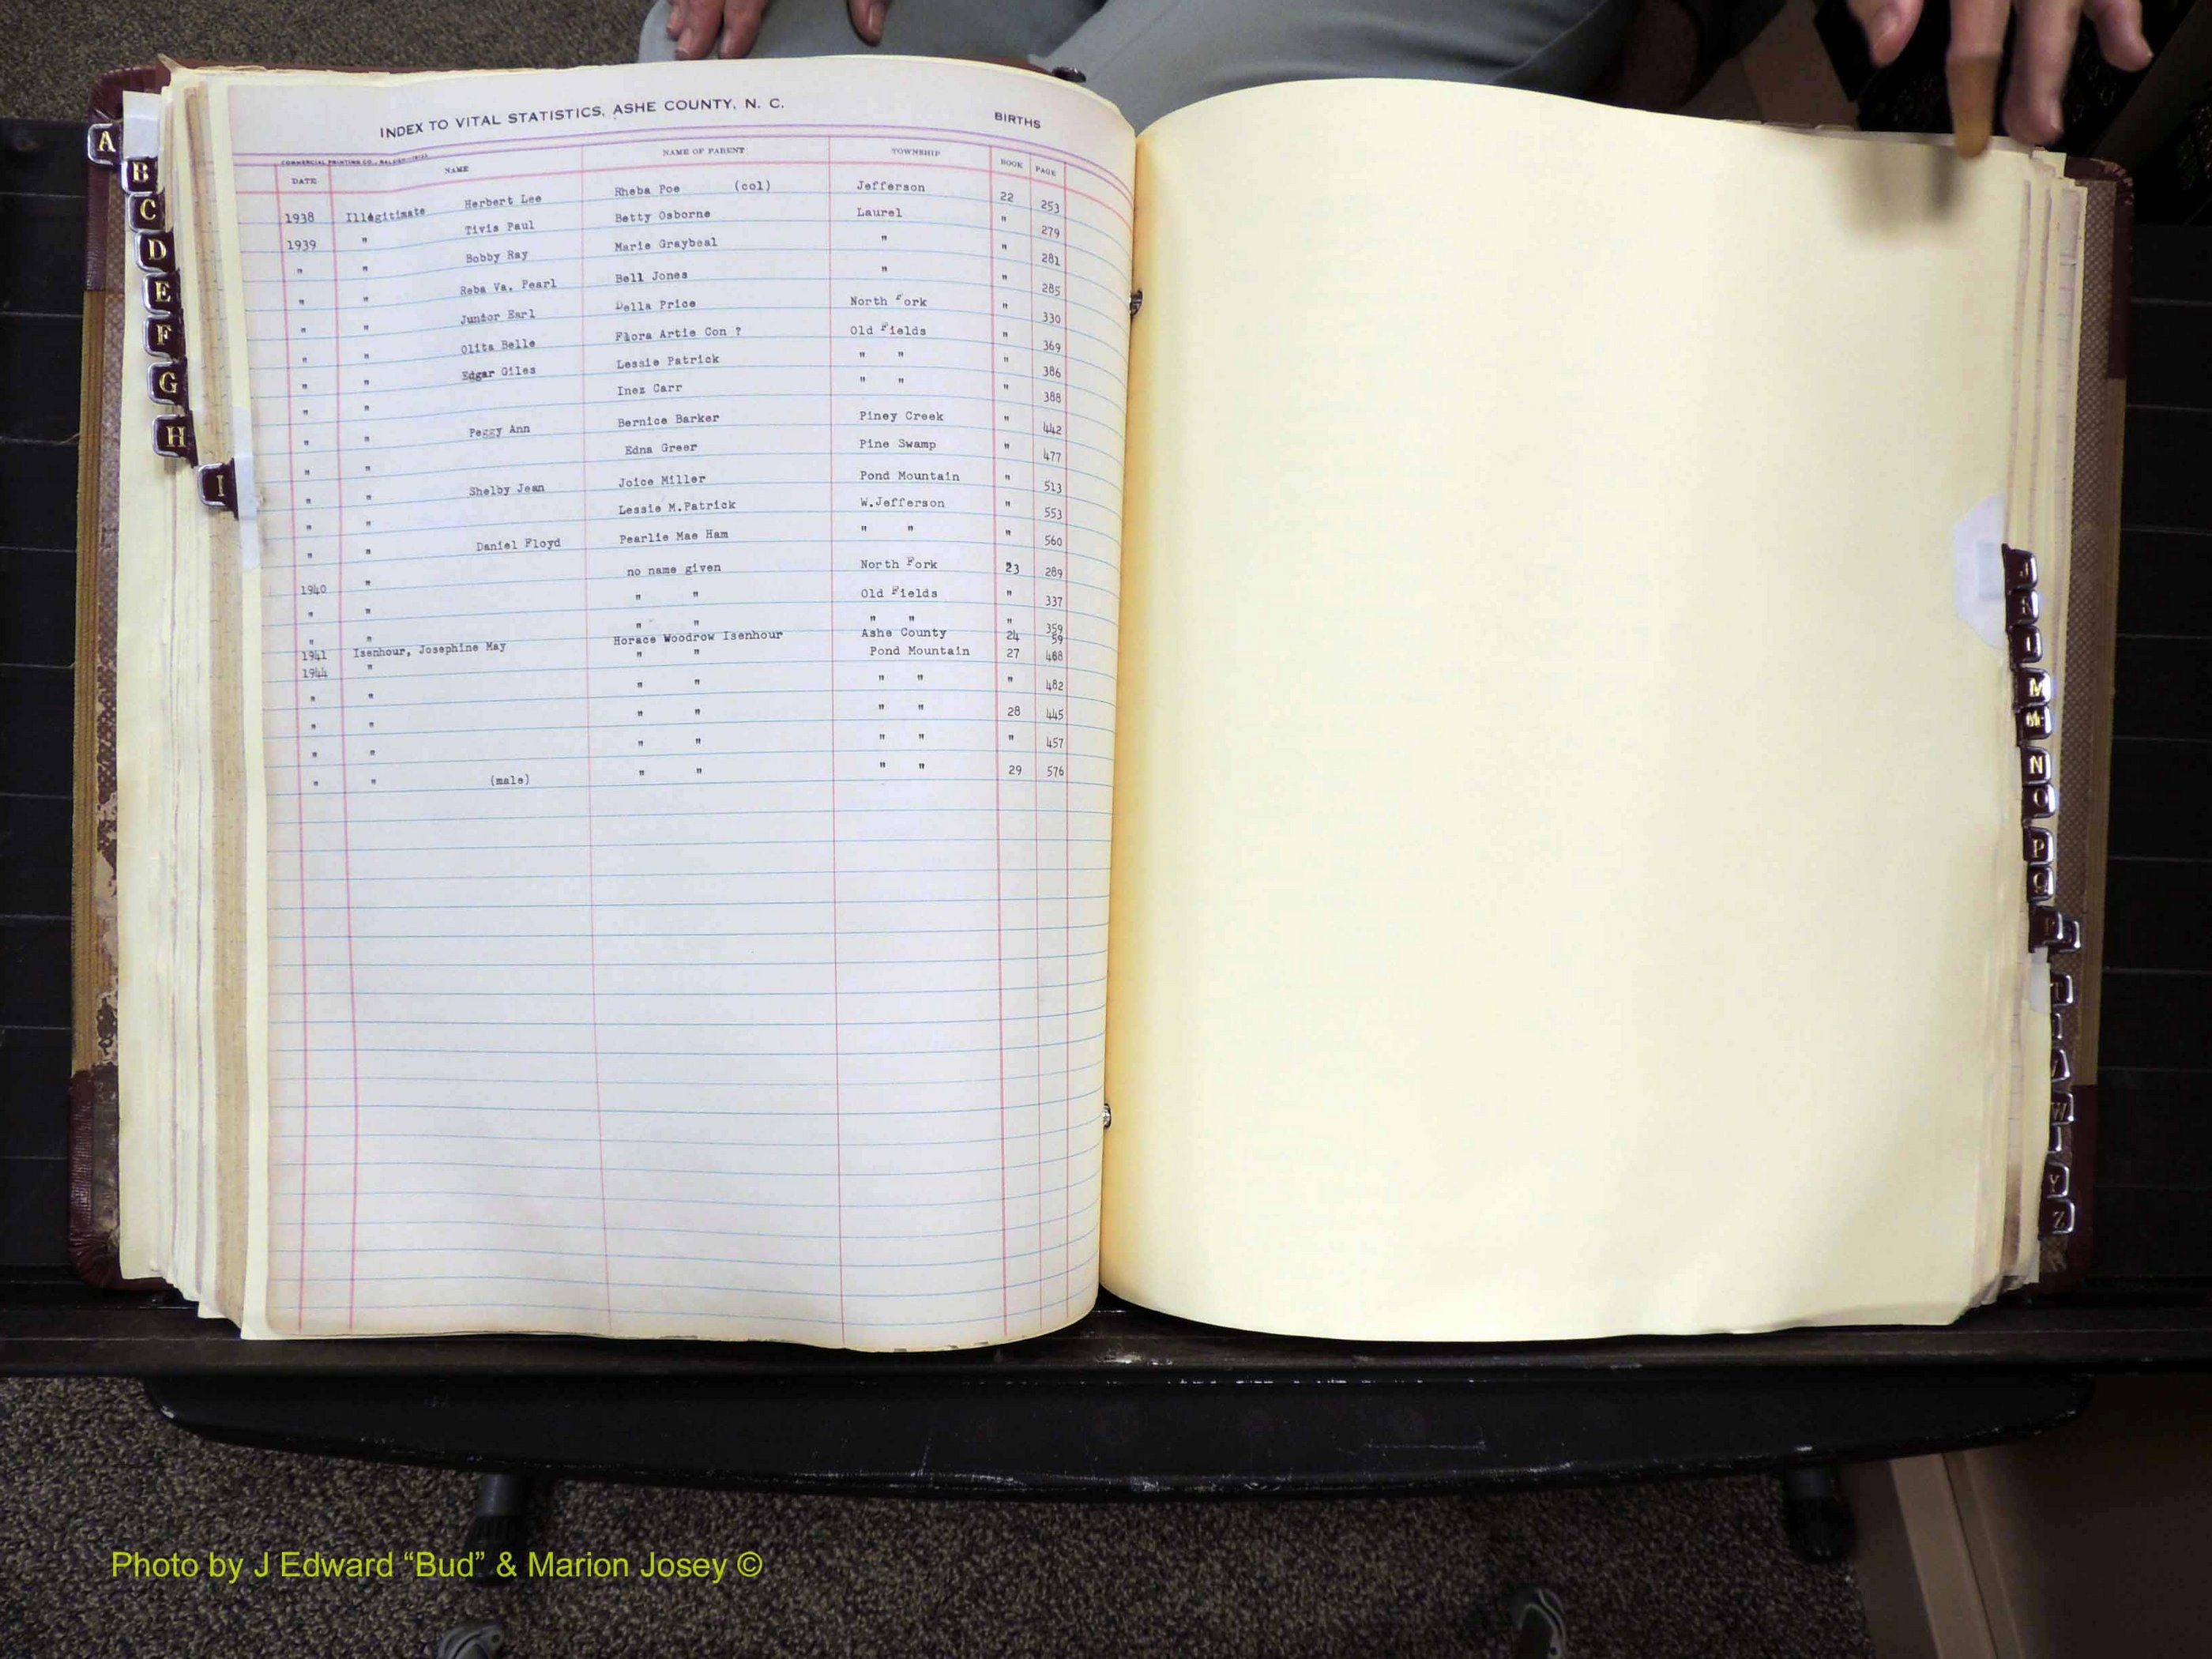 INDEX TO VITAL STATISTICS, ASHE COUNTY, N. C. BIRTHS
COMMERCIAL PRINTING CO., RALEIGH
DATE NAME NAME OF PARENT TOWNSHIP BOOK PAGE
1938 Illegitimate Herbert Lee Rheba Poe (col) Jefferson 22 253
1939 " Tivis Paul Betty Osborne Laurel " 279
" " Bobby Ray Marie Graybeal " " 281
" " Reba Va. Pearl Bell Jones " " 285
" " Junior Earl Della Price North Fork " 330
" " Olita Belle Flora Artie Con ? Old Fields " 369
" " Edgar Giles Lessie Patrick " " " 386
" " Inez Carr " " " 388
" " Peggy Ann Bernice Barker Piney Creek " 442
" " Edna Greer Pine Swamp " 477
" " Shelby Jean Joice Miller Pond Mountain " 513
" " Lessie M.Patrick W.Jefferson " 553
" " Daniel Floyd Pearlie Mae Ham " " " 560
1940 " no name given North Fork 23 289
" " " " Old Fields " 337
" " " " " " " 359
1941 Isenhour, Josephine May Horace Woodrow Isenhour Ashe County 24 59
1944 " " " Pond Mountain 27 468
" " " " " " " 482
" " " " " " 28 445
" " " " " " " 457
" " (male) " " " " 29 576
A
B
C
D
E
F
G
H
I
J
K
L
M
Mc
N
O
P
Q
R
T
W
Y
Z
Photo by J Edward “Bud” & Marion Josey ©